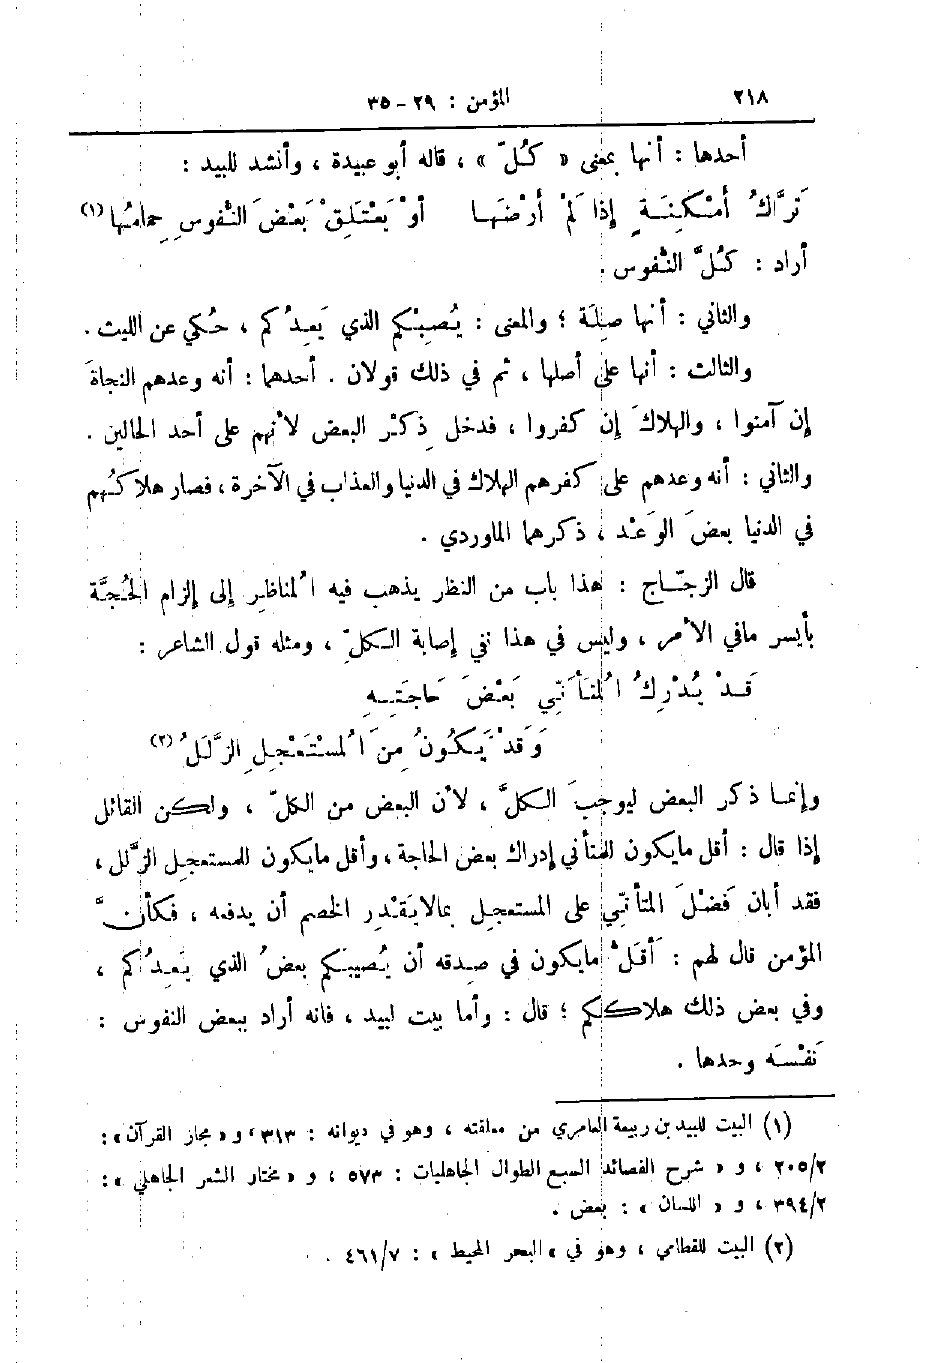 ٢١٨ المؤمن : ٢٩ - ٣٥
أحدها : أنها بمعنى « كُلّ » ، قاله أبو عبيدة ، وأنشد للبيد :
تَرَّاكُ أَمْكِنَةٍ إِذا لَمْ أَرْضَهَا أَوْ يَعْتَلِقْ بَعْضَ النُّفوسِ حِمامُها (١)
أراد : كُلَّ النُّفوس .
والثاني : أنها صِلَة ؛ والمعنى : يُصِبْكم الذي يَعِدُكم ، حُكي عن الليث .
والثالث : أنها على أصلها ، ثم في ذلك قولان . أحدهما : أنه وعدهم النجاةَ
إن آمنوا ، والهلاكَ إن كفروا ، فدخل ذِكْر البعض لأنهم على أحد الحالين .
والثاني : أنه وعدهم على كفرهم الهلاك في الدنيا والعذاب في الآخرة ، فصار هلاكُهم
في الدنيا بعضَ الوَعْد ، ذكرهما الماوردي .
قال الزجّاج : هذا باب من النظر يذهب فيه المُناظِر إلى إلزام الحُجَّة
بأيسر مافي الأمر ، وليس في هذا نفي إصابة الكلِّ ، ومثله قول الشاعر :
قَدْ يُدْرِكُ المُتَأَنِّي بَعْضَ حَاجَتِهِ
وَقَدْ يَكُونُ مِنَ المُسْتَعْجِلِ الزَّلَلُ (٢)
وإنما ذكر البعض ليوجبَ الكلَّ ، لأن البعض من الكلّ ، ولكن القائل
إذا قال : أقل مايكون للمتأني إدراك بعض الحاجة ، وأقل مايكون للمستعجل الزَّلل ،
فقد أبان فَضْلَ المتأنّي على المستعجل بمالايَقْدِر الخصم أن يدفعه ، فكأنَّ
المؤمن قال لهم : أَقَلُّ مايكون في صِدقه أن يُصيبَكم بعضُ الذي يَعِدُكم ،
وفي بعض ذلك هلاككم ؛ قال : وأما بيت لبيد ، فانه أراد ببعض النفوس :
نَفْسَه وحدها .
(١) البيت للبيد بن ربيعة العامري من معلقته ، وهو في ديوانه : ٣١٣ ، و « مجاز القرآن » :
٢٠٥/٢ ، و « شرح القصائد السبع الطوال الجاهليات : ٥٧٣ ، و « مختار الشعر الجاهلي » :
٣٩٤/٢ ، و « اللسان » : بعض .
(٢) البيت للقطامي ، وهو في « البحر المحيط » : ٤٦١/٧ .